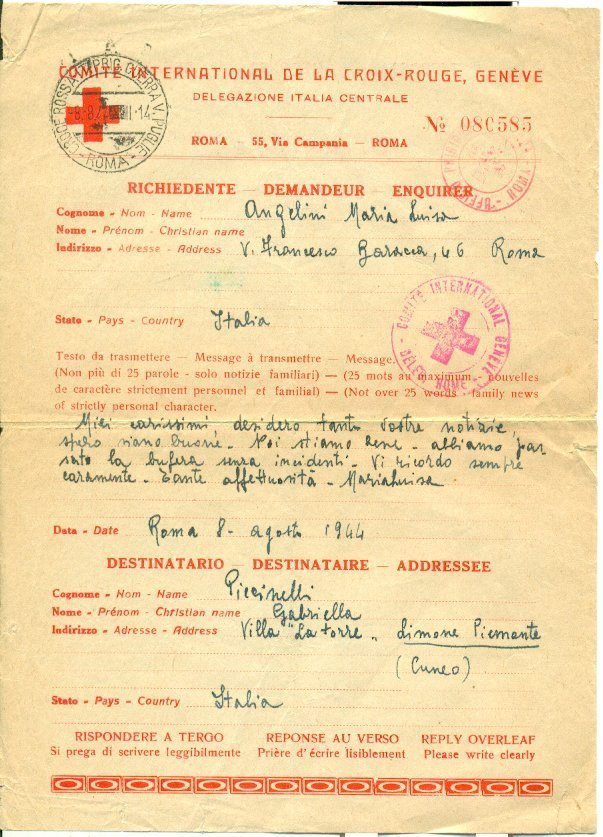 COMITÉ INTERNATIONAL DE LA CROIX-ROUGE, GENÈVE
DELEGAZIONE ITALIA CENTRALE
№ 080585
ROMA - 55, Via Campania - ROMA
ROMA
RICHIEDENTE - DEMANDEUR - ENQUIRER
Cognome - Nom - Name Angelini Maria Luisa
Nome - Prénom - Christian name
Indirizzo - Adresse - Address V. Francesco Baracca, 46 Roma
Stato - Pays - Country Italia
COMITÉ INTERNATIONAL GENÈVE
Testo da trasmettere — Message à transmettre — Message.
(Non più di 25 parole - solo notizie familiari) — (25 mots au maximum - nouvelles
de caractère strictement personnel et familial) — (Not over 25 words - family news
of strictly personal character.
Miei carissimi, desidero tanto vostre notizie,
spero siano buone - Noi stiamo bene - abbiamo pas
sato la bufera senza incidenti. Vi ricordo sempre
caramente - Tante affettuosità - MariaLuisa
Data - Date Roma 8 - agosto 1944
DESTINATARIO - DESTINATAIRE - ADDRESSEE
Cognome - Nom - Name Piccinelli
Nome - Prénom - Christian name Gabriella
Indirizzo - Adresse - Address Villa "La torre - Limone Piemonte
(Cuneo)
Stato - Pays - Country Italia
RISPONDERE A TERGO REPONSE AU VERSO REPLY OVERLEAF
Si prega di scrivere leggibilmente Prière d'écrire lisiblement Please write clearly